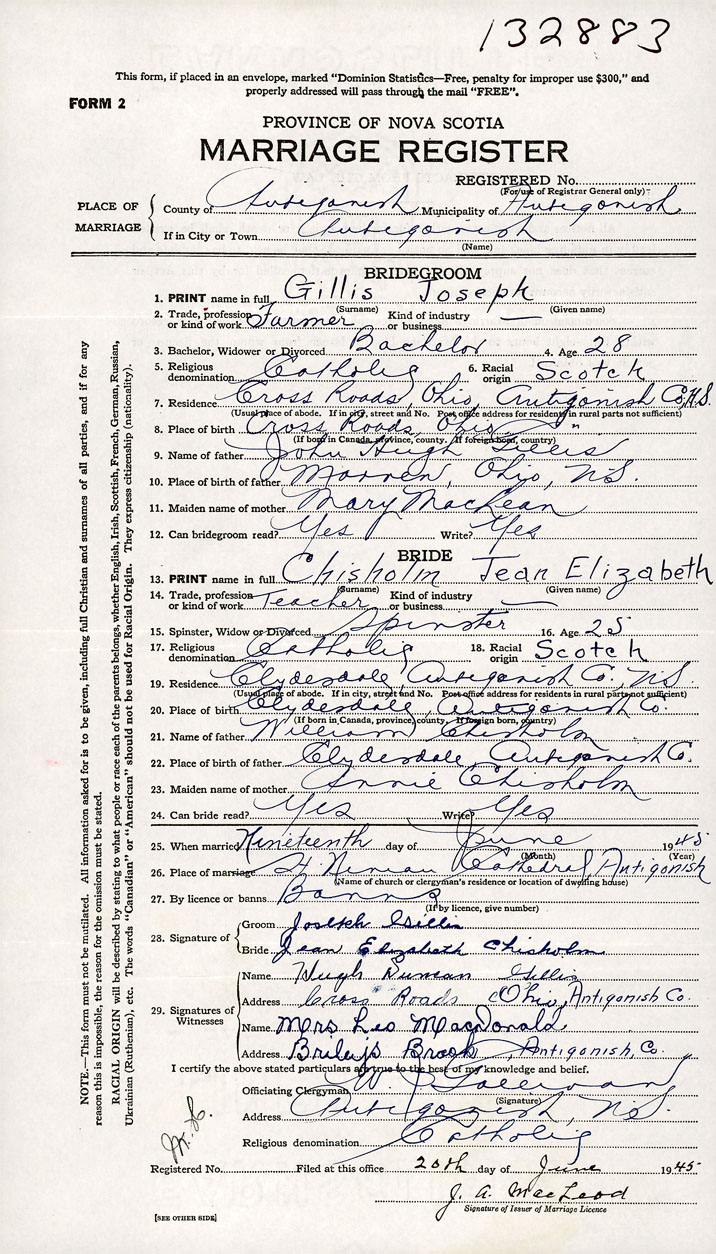 132883
This form, if placed in an envelope, marked "Dominion Statistics—Free, penalty for improper use $300," and
properly addressed will pass through the mail "FREE".
FORM 2
PROVINCE OF NOVA SCOTIA
MARRIAGE REGISTER
REGISTERED No.
(For use of Registrar General only)
PLACE OF MARRIAGE
County of Antigonish Municipality of Antigonish
If in City or Town Antigonish
(Name)
BRIDEGROOM
1. PRINT name in full Gillis Joseph
(Surname) (Given name)
2. Trade, profession or kind of work Farmer Kind of industry or business —
3. Bachelor, Widower or Divorced Bachelor 4. Age 28
5. Religious denomination Catholic 6. Racial origin Scotch
7. Residence Cross Roads, Ohio, Antigonish Co, N.S.
(Usual place of abode. If in city, street and No. Post office address for residents in rural parts not sufficient)
8. Place of birth Cross Roads, Ohio "
(If born in Canada, province, county. If foreign born, country)
9. Name of father John Hugh Gillis
10. Place of birth of father Ohio, N.S.
11. Maiden name of mother Mary MacLean
12. Can bridegroom read? Yes Write? Yes
BRIDE
13. PRINT name in full Chisholm Jean Elizabeth
(Surname) (Given name)
14. Trade, profession or kind of work Teacher Kind of industry or business —
15. Spinster, Widow or Divorced Spinster 16. Age 25
17. Religious denomination Catholic 18. Racial origin Scotch
19. Residence Clydesdale Antigonish Co. N.S.
(Usual place of abode. If in city, street and No. Post office address for residents in rural parts not sufficient)
20. Place of birth Clydesdale, Antigonish Co.
(If born in Canada, province, county. If foreign born, country)
21. Name of father William Chisholm
22. Place of birth of father Clydesdale Antigonish C.
23. Maiden name of mother Annie Chisholm
24. Can bride read? Yes Write? Yes
25. When married Nineteenth day of June 1945
(Month) (Year)
26. Place of marriage St. Ninian Cathedral, Antigonish
(Name of church or clergyman's residence or location of dwelling house)
27. By licence or banns Banns
(If by licence, give number)
28. Signature of
Groom Joseph Gillis
Bride Jean Elizabeth Chisholm
29. Signatures of Witnesses
Name Hugh Duncan Gillis
Address Cross Roads Ohio, Antigonish Co.
Name Mrs Leo MacDonald
Address Briley's Brook, Antigonish, Co.
I certify the above stated particulars are true to the best of my knowledge and belief.
Officiating Clergyman
(Signature)
Address Antigonish, N.S.
Religious denomination Catholic
Registered No. Filed at this office 20th day of June 1945
J. A. MacLeod
Signature of Issuer of Marriage Licence
[SEE OTHER SIDE]
NOTE.—This form must not be mutilated. All information asked for is to be given, including full Christian and surnames of all parties, and if for any
reason this is impossible, the reason for the omission must be stated.
RACIAL ORIGIN will be described by stating to what people or race each of the parents belongs, whether English, Irish, Scottish, French, German, Russian,
Ukrainian (Ruthenian), etc. The words "Canadian" or "American" should not be used for Racial Origin. They express citizenship (nationality).